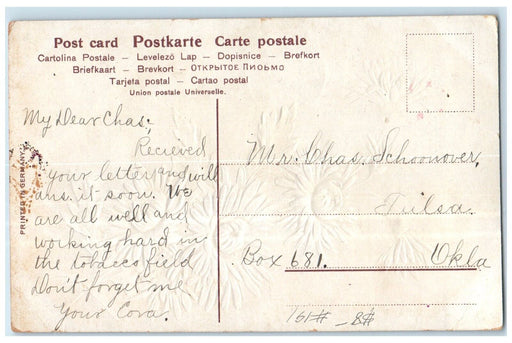 Post card Postkarte Carte postale
Cartolina Postale – Levelező Lap – Dopisnice – Brefkort
Briefkaart – Brevkort – Открытое Письмо
Tarjeta postal – Cartao postal
Union postale Universelle.
My Dear Chas;
Recieved
your letter and will
ans. it soon. We
are all well and
working hard in
the tobacco field
Don't forget me
Your Cora.
PRINTED IN GERMANY
Mr. Chas. Schoonover,
Tulsa.
Box 681. Okla
161# – 8#